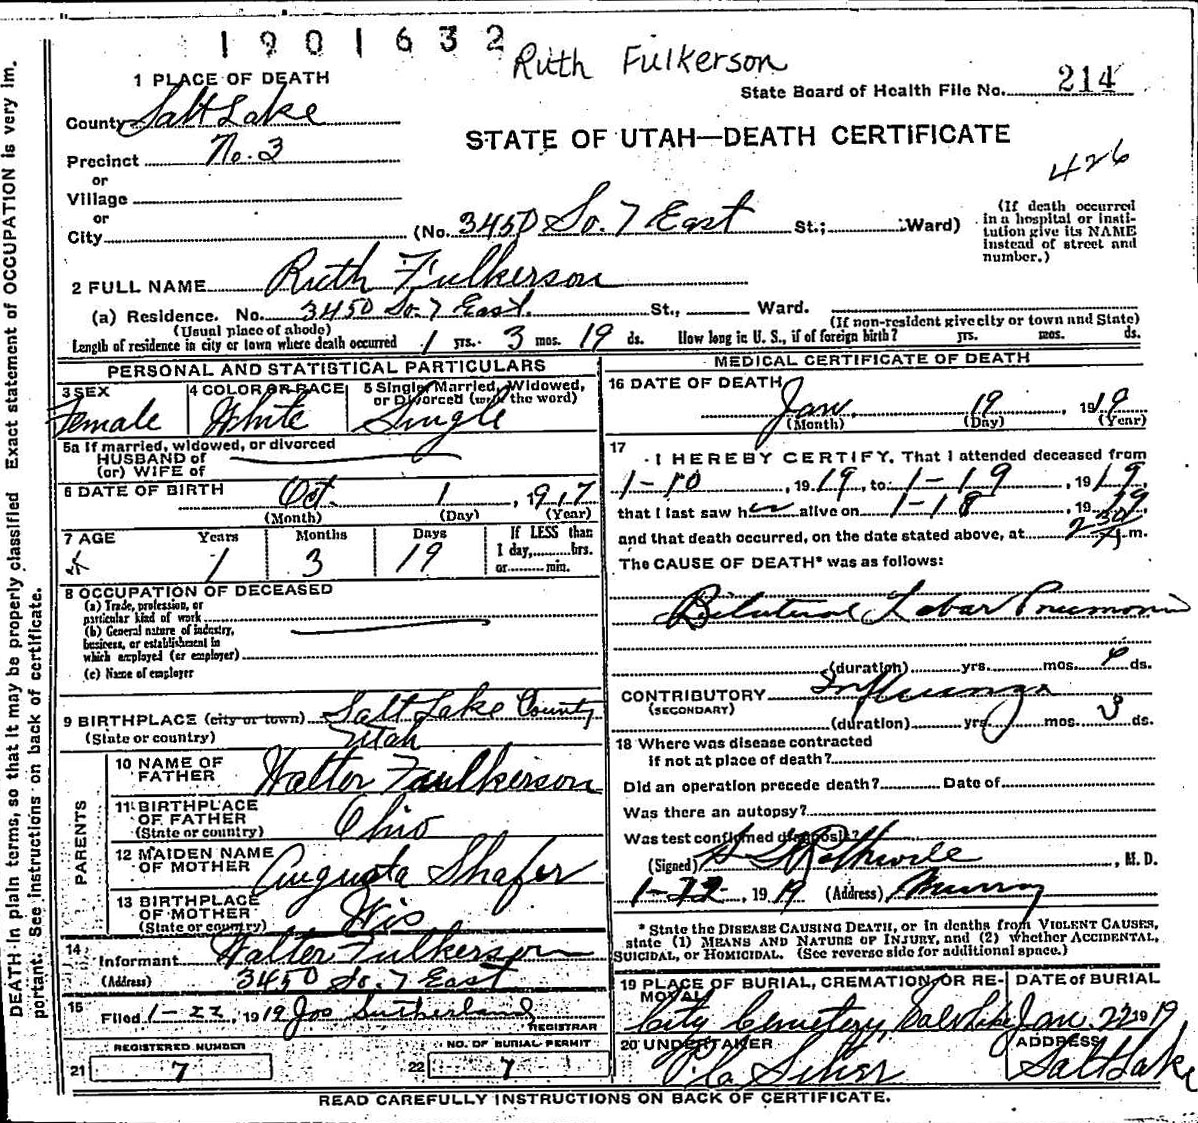 1901632
Ruth Fulkerson
1 PLACE OF DEATH
State Board of Health File No. 214
County Salt Lake
STATE OF UTAH—DEATH CERTIFICATE
Precinct No. 3
426
or
Village
or
City (No. 3450 So. 7 East St.; Ward)
(If death occurred in a hospital or insti-
tution give its NAME
instead of street and
number.)
2 FULL NAME Ruth Fulkerson
(a) Residence. No. 3450 So. 7 East. St., Ward.
(Usual place of abode) (If non-resident give city or town and State)
Length of residence in city or town where death occurred 1 yrs. 3 mos. 19 ds. How long in U. S., if of foreign birth? yrs. mos. ds.
PERSONAL AND STATISTICAL PARTICULARS
3 SEX 4 COLOR OR RACE 5 Single, Married, Widowed,
or Divorced (write the word)
Female White Single
5a If married, widowed, or divorced
HUSBAND of
(or) WIFE of
6 DATE OF BIRTH Oct. 1, 1917
(Month) (Day) (Year)
7 AGE Years Months Days If LESS than
1 day, hrs.
or min.
1 3 19
8 OCCUPATION OF DECEASED
(a) Trade, profession, or
particular kind of work
(b) General nature of industry,
business, or establishment in
which employed (or employer)
(c) Name of employer
9 BIRTHPLACE (city or town) Salt Lake County
(State or country) Utah
PARENTS
10 NAME OF
FATHER Walter Faulkerson
11 BIRTHPLACE
OF FATHER
(State or country) Ohio
12 MAIDEN NAME
OF MOTHER Augusta Shafer
13 BIRTHPLACE
OF MOTHER
(State or country) Wis
14
Informant Walter Fulkerson
(Address) 3450 So. 7 East
15
Filed 1-22, 1919 Jos Sutherland
REGISTRAR
REGISTERED NUMBER
21 7
NO. OF BURIAL PERMIT
22 7
MEDICAL CERTIFICATE OF DEATH
16 DATE OF DEATH
Jan. 19, 1919
(Month) (Day) (Year)
17
I HEREBY CERTIFY, That I attended deceased from
1-10, 1919, to 1-19, 1919
that I last saw her alive on 1-18, 1919
and that death occurred, on the date stated above, at 230 m.
The CAUSE OF DEATH* was as follows:
Bilateral Lobar Pneumonia
(duration) yrs. mos. ds.
CONTRIBUTORY Influenza
(SECONDARY)
(duration) yrs. mos. 3 ds.
18 Where was disease contracted
if not at place of death?
Did an operation precede death? Date of
Was there an autopsy?
Was test confirmed diagnosis?
(Signed) , M. D.
1-22, 1919 (Address) Murray
* State the DISEASE CAUSING DEATH, or in deaths from VIOLENT CAUSES,
state (1) MEANS AND NATURE OF INJURY, and (2) whether ACCIDENTAL,
SUICIDAL, or HOMICIDAL. (See reverse side for additional space.)
19 PLACE OF BURIAL, CREMATION, OR RE-
MOVAL
DATE of BURIAL
City Cemetery, Salt Lake Jan. 22 1919
20 UNDERTAKER ADDRESS
Salt Lake
READ CAREFULLY INSTRUCTIONS ON BACK OF CERTIFICATE.
DEATH in plain terms, so that it may be properly classified Exact statement of OCCUPATION is very im-
portant. See instructions on back of certificate.